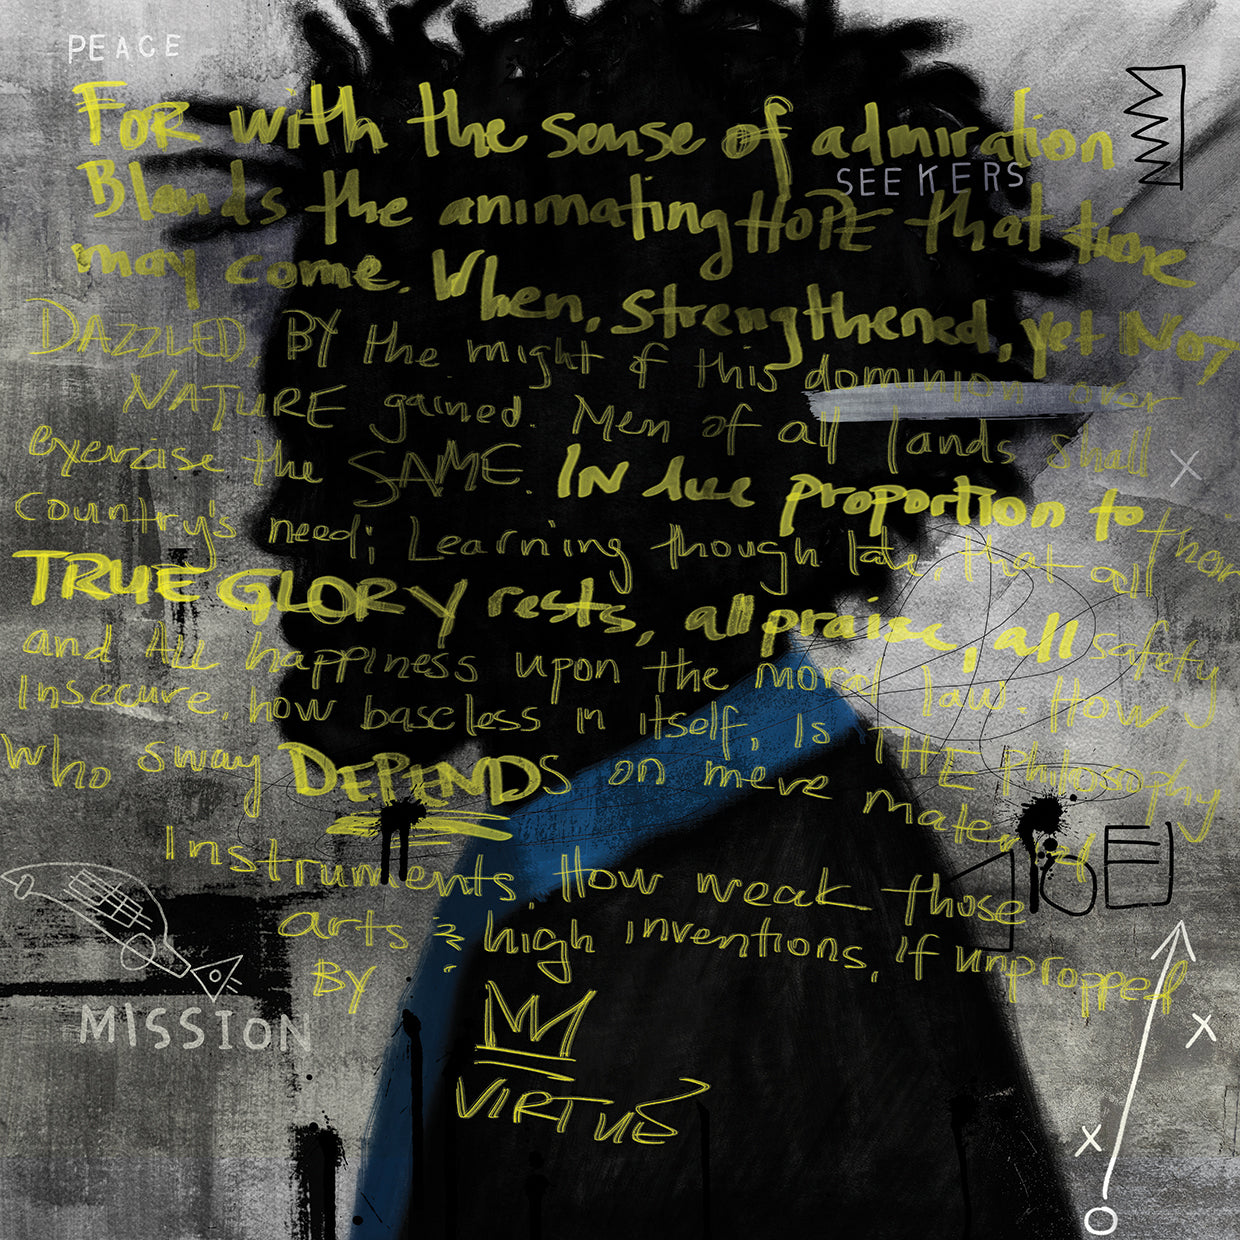 PEACE
FOR with the sense of admiration
SEEKERS
Blends the animating HOPE that time
may come. When, strengthened, yet NOT
DAZZLED, BY the might of this dominion over
NATURE gained. Men of all lands shall
exercise the SAME. IN due proportion to their
Country's need; Learning though late, that all
TRUE GLORY rests, all praise, all safety
and ALL happiness upon the moral law. How
Insecure, how baseless in itself, Is THE Philosophy
who sway DEPENDS on mere material
Instruments. How weak those
arts & high inventions, if unpropped
BY
VIRTUE
MISSION
X
X
X